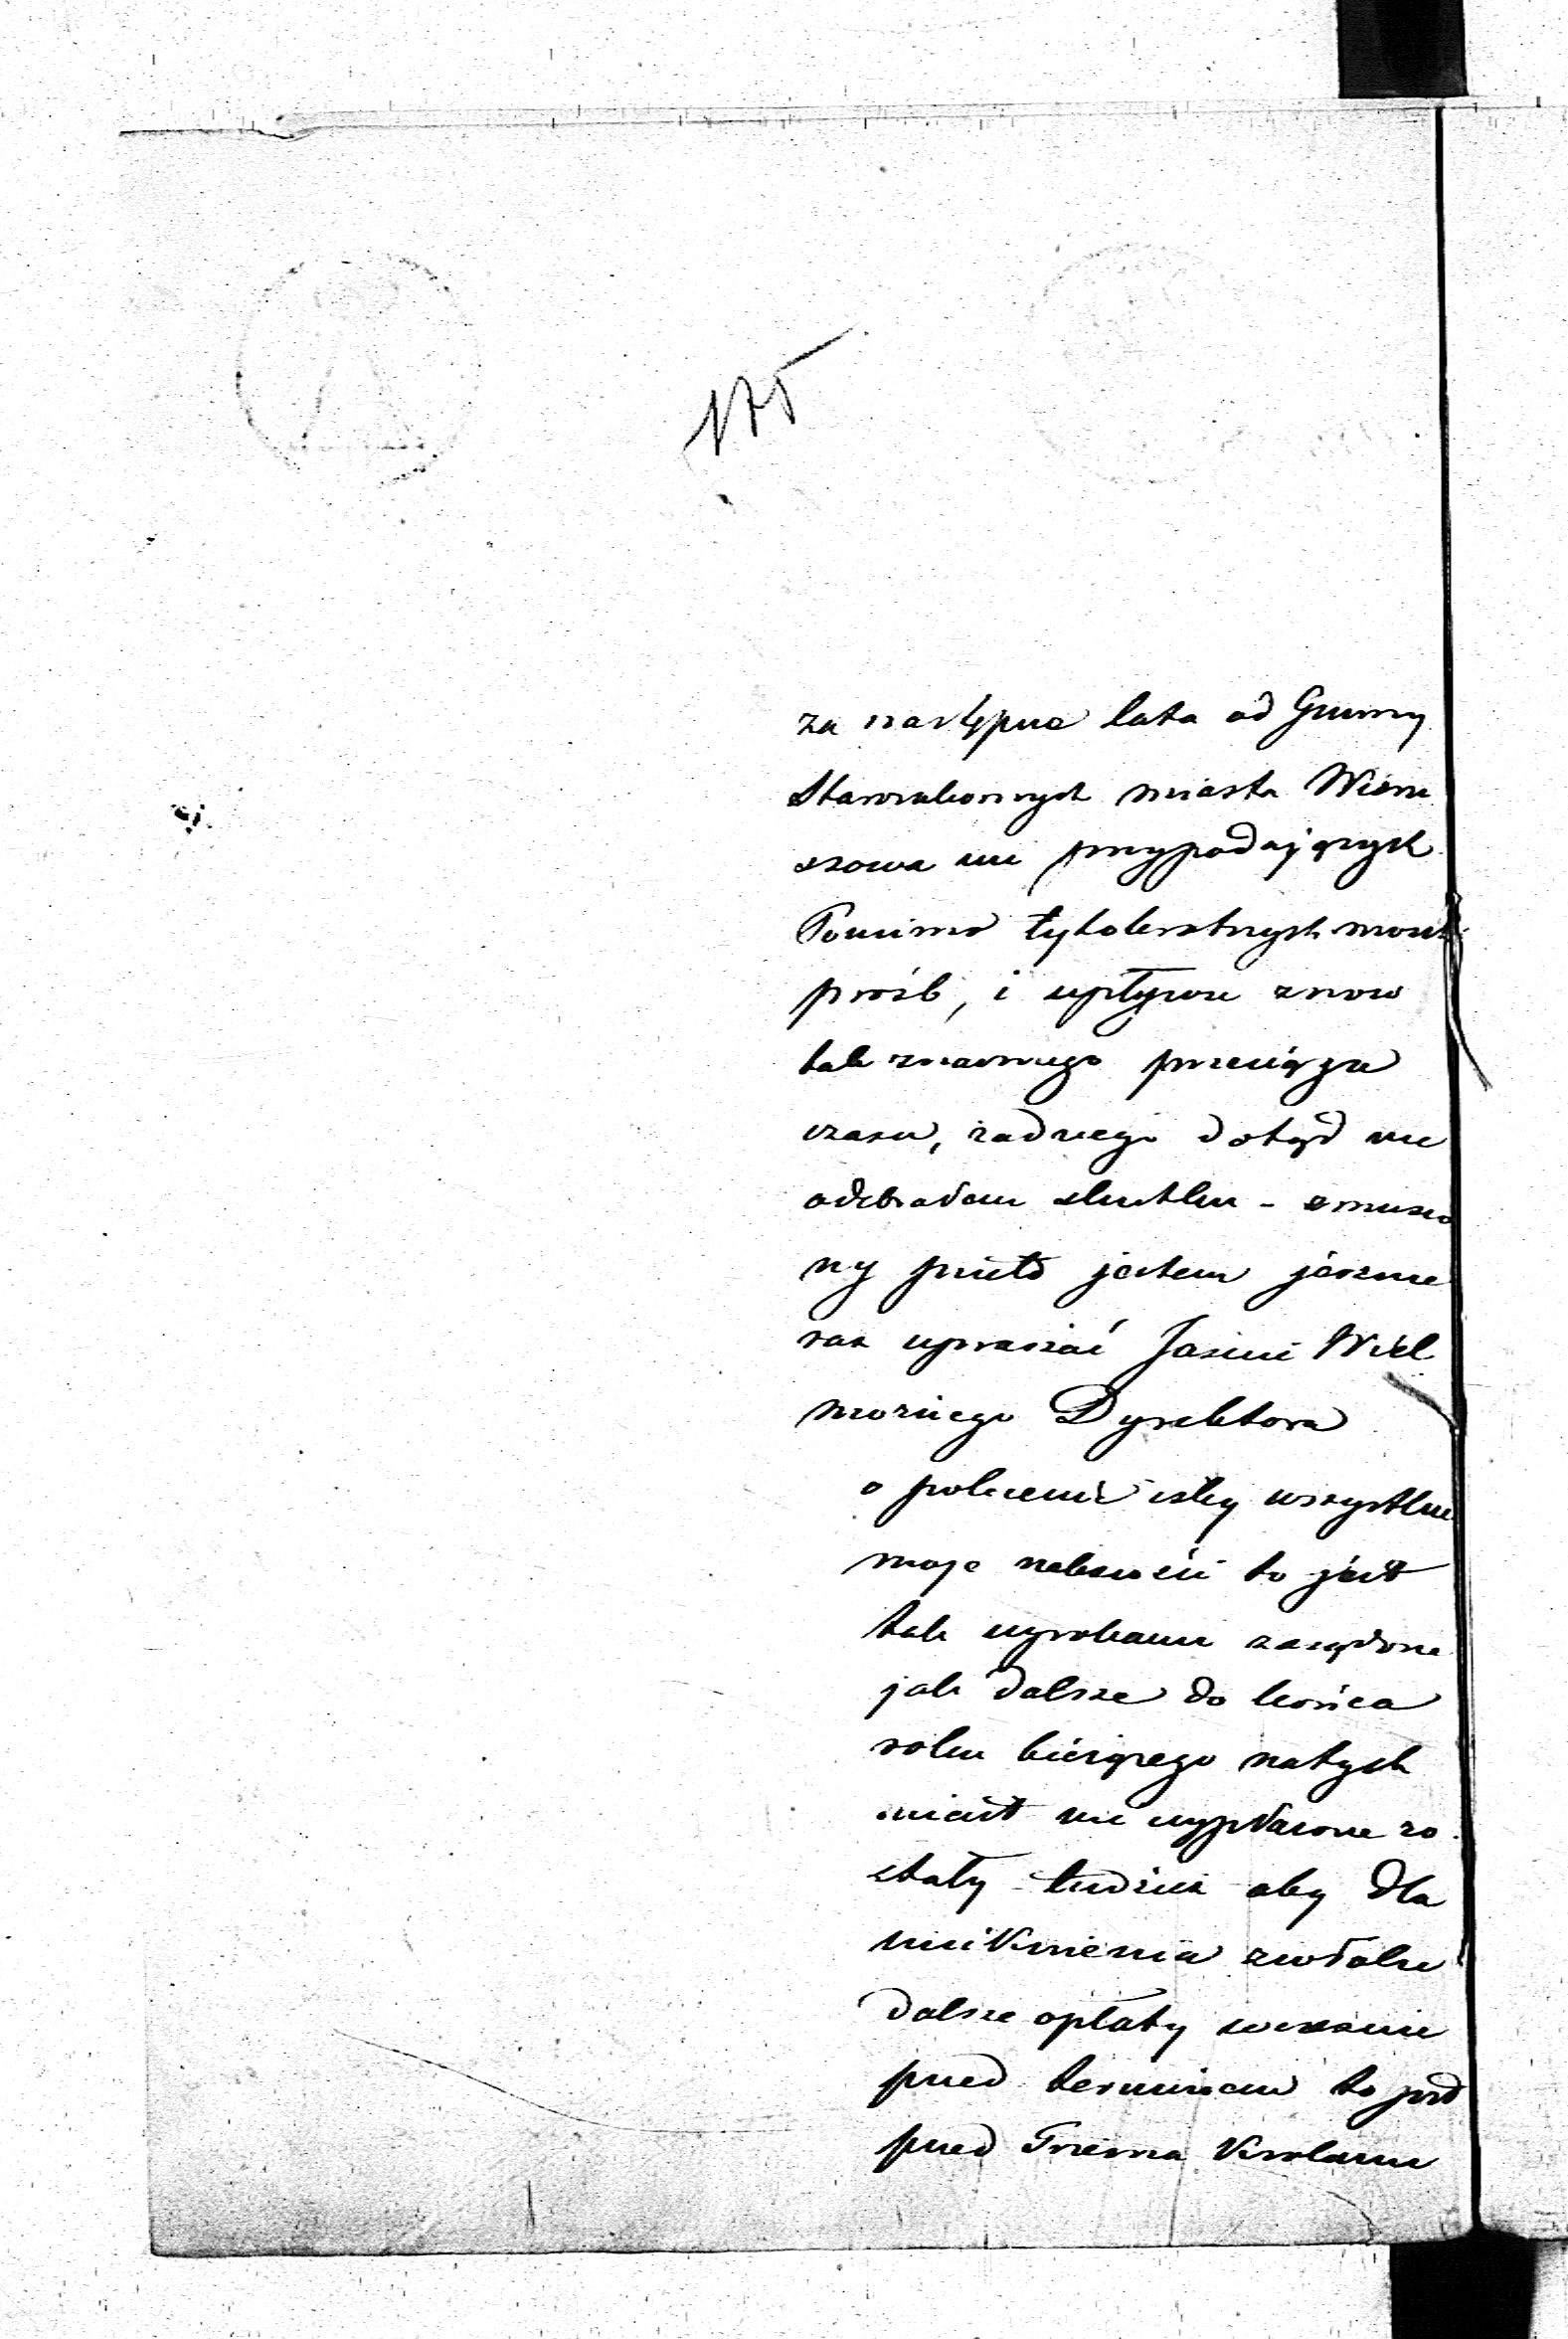 175
za następne lata od Gminy
Starozakonnych miasta Wieru
szowa mi przypadających
Pomimo tylokrotnych moich
próśb, i upływu znow
tak znacznego przeciągu
czasu, żadnego dotąd nie
odebrałem skutku - zmuszo
ny przeto jestem jeszcze
raz upraszać Jaśnie Wiel
możnego Dyrektora
o polecenie iżby wszystkie
moje należności to jest
tak wyrokami zasądzone
jak dalsze do końca
roku bieżącego natych
miast mi wypłacone zo
stały tudzież aby dla
uniknienia zwłoki
dalsze opłaty wcześnie
przed terminem to jest
przed Trzema Krolami